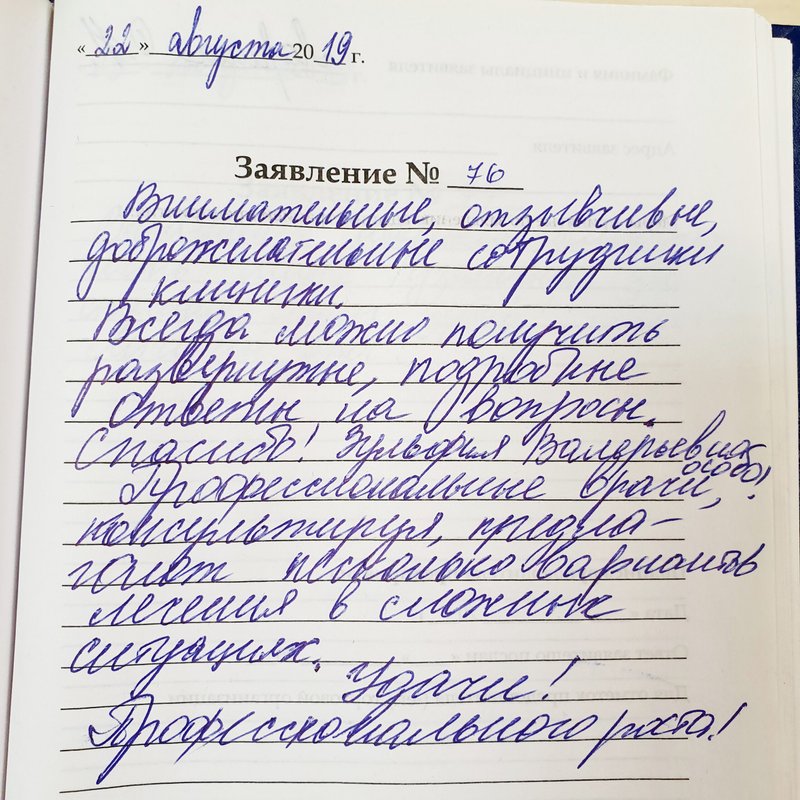 « 22 » августа 20 19 г.
Заявление № 76
Внимательные, отзывчивые,
доброжелательные сотрудники
клиники.
Всегда можно получить
развернутые, подробные
ответы на вопросы.
Спасибо! Зульфия Валерьевна особо!
Профессиональные врачи,
консультируя, предла-
гают несколько вариантов
лечения в сложных
ситуациях.
Удачи!
Профессионального роста!